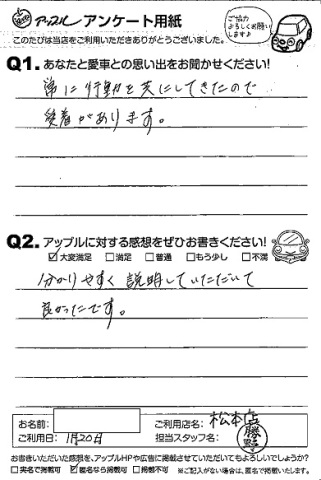 アップル アンケート用紙
ご協力
よろしくお願い
します♪
このたびは当店をご利用いただきありがとうございました。
Q1. あなたと愛車との思い出をお聞かせください!
常に行動を共にしてきたので
愛着があります。
Q2. アップルに対する感想をぜひお書きください!
☑大変満足 □満足 □普通 □もう少し □不満
分かりやすく説明していただいて
良かったです。
お名前:
ご利用店名: 松本店
ご利用日: 1月20日
担当スタッフ名:
お書きいただいた感想を、アップルHPや広告に掲載させていただいてもよろしいでしょうか?
□実名で掲載可 ☑匿名なら掲載可 □掲載不可 ※ご記入がない場合は、匿名で掲載いたします。